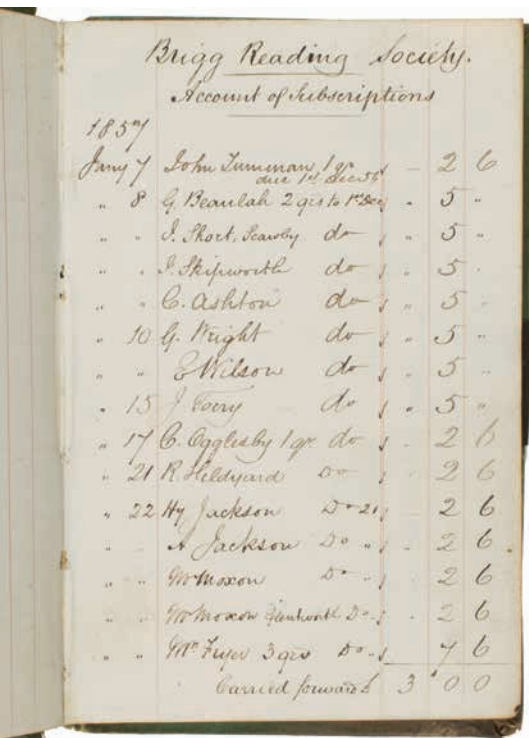 Brigg Reading Society.
Account of Subscriptions
1857
Jany 7 John Tumman 1 qr - 2 6
due 1st Dec 56
" 8 G. Beaulah 2 qrs to 1st Dec " 5 "
" " J. Short, Scawby do " 5 "
" " J. Skipworth do " 5 "
" " C. Ashton do " 5 "
" 10 G. Wright do " 5 "
" " E Wilson do " 5 "
" 15 J do " 5 "
" 17 C. Ogglesby 1 qr do - 2 6
" 21 R. Hildyard Do - 2 6
" 22 Hy Jackson Do - 2 6
" " A Jackson Do " - 2 6
" " Mr Moxon Do - 2 6
" " Mr Moxon Do - 2 6
" " Mr Fryer 3 qrs Do 7 6
Carried forward £ 3 " 0 0